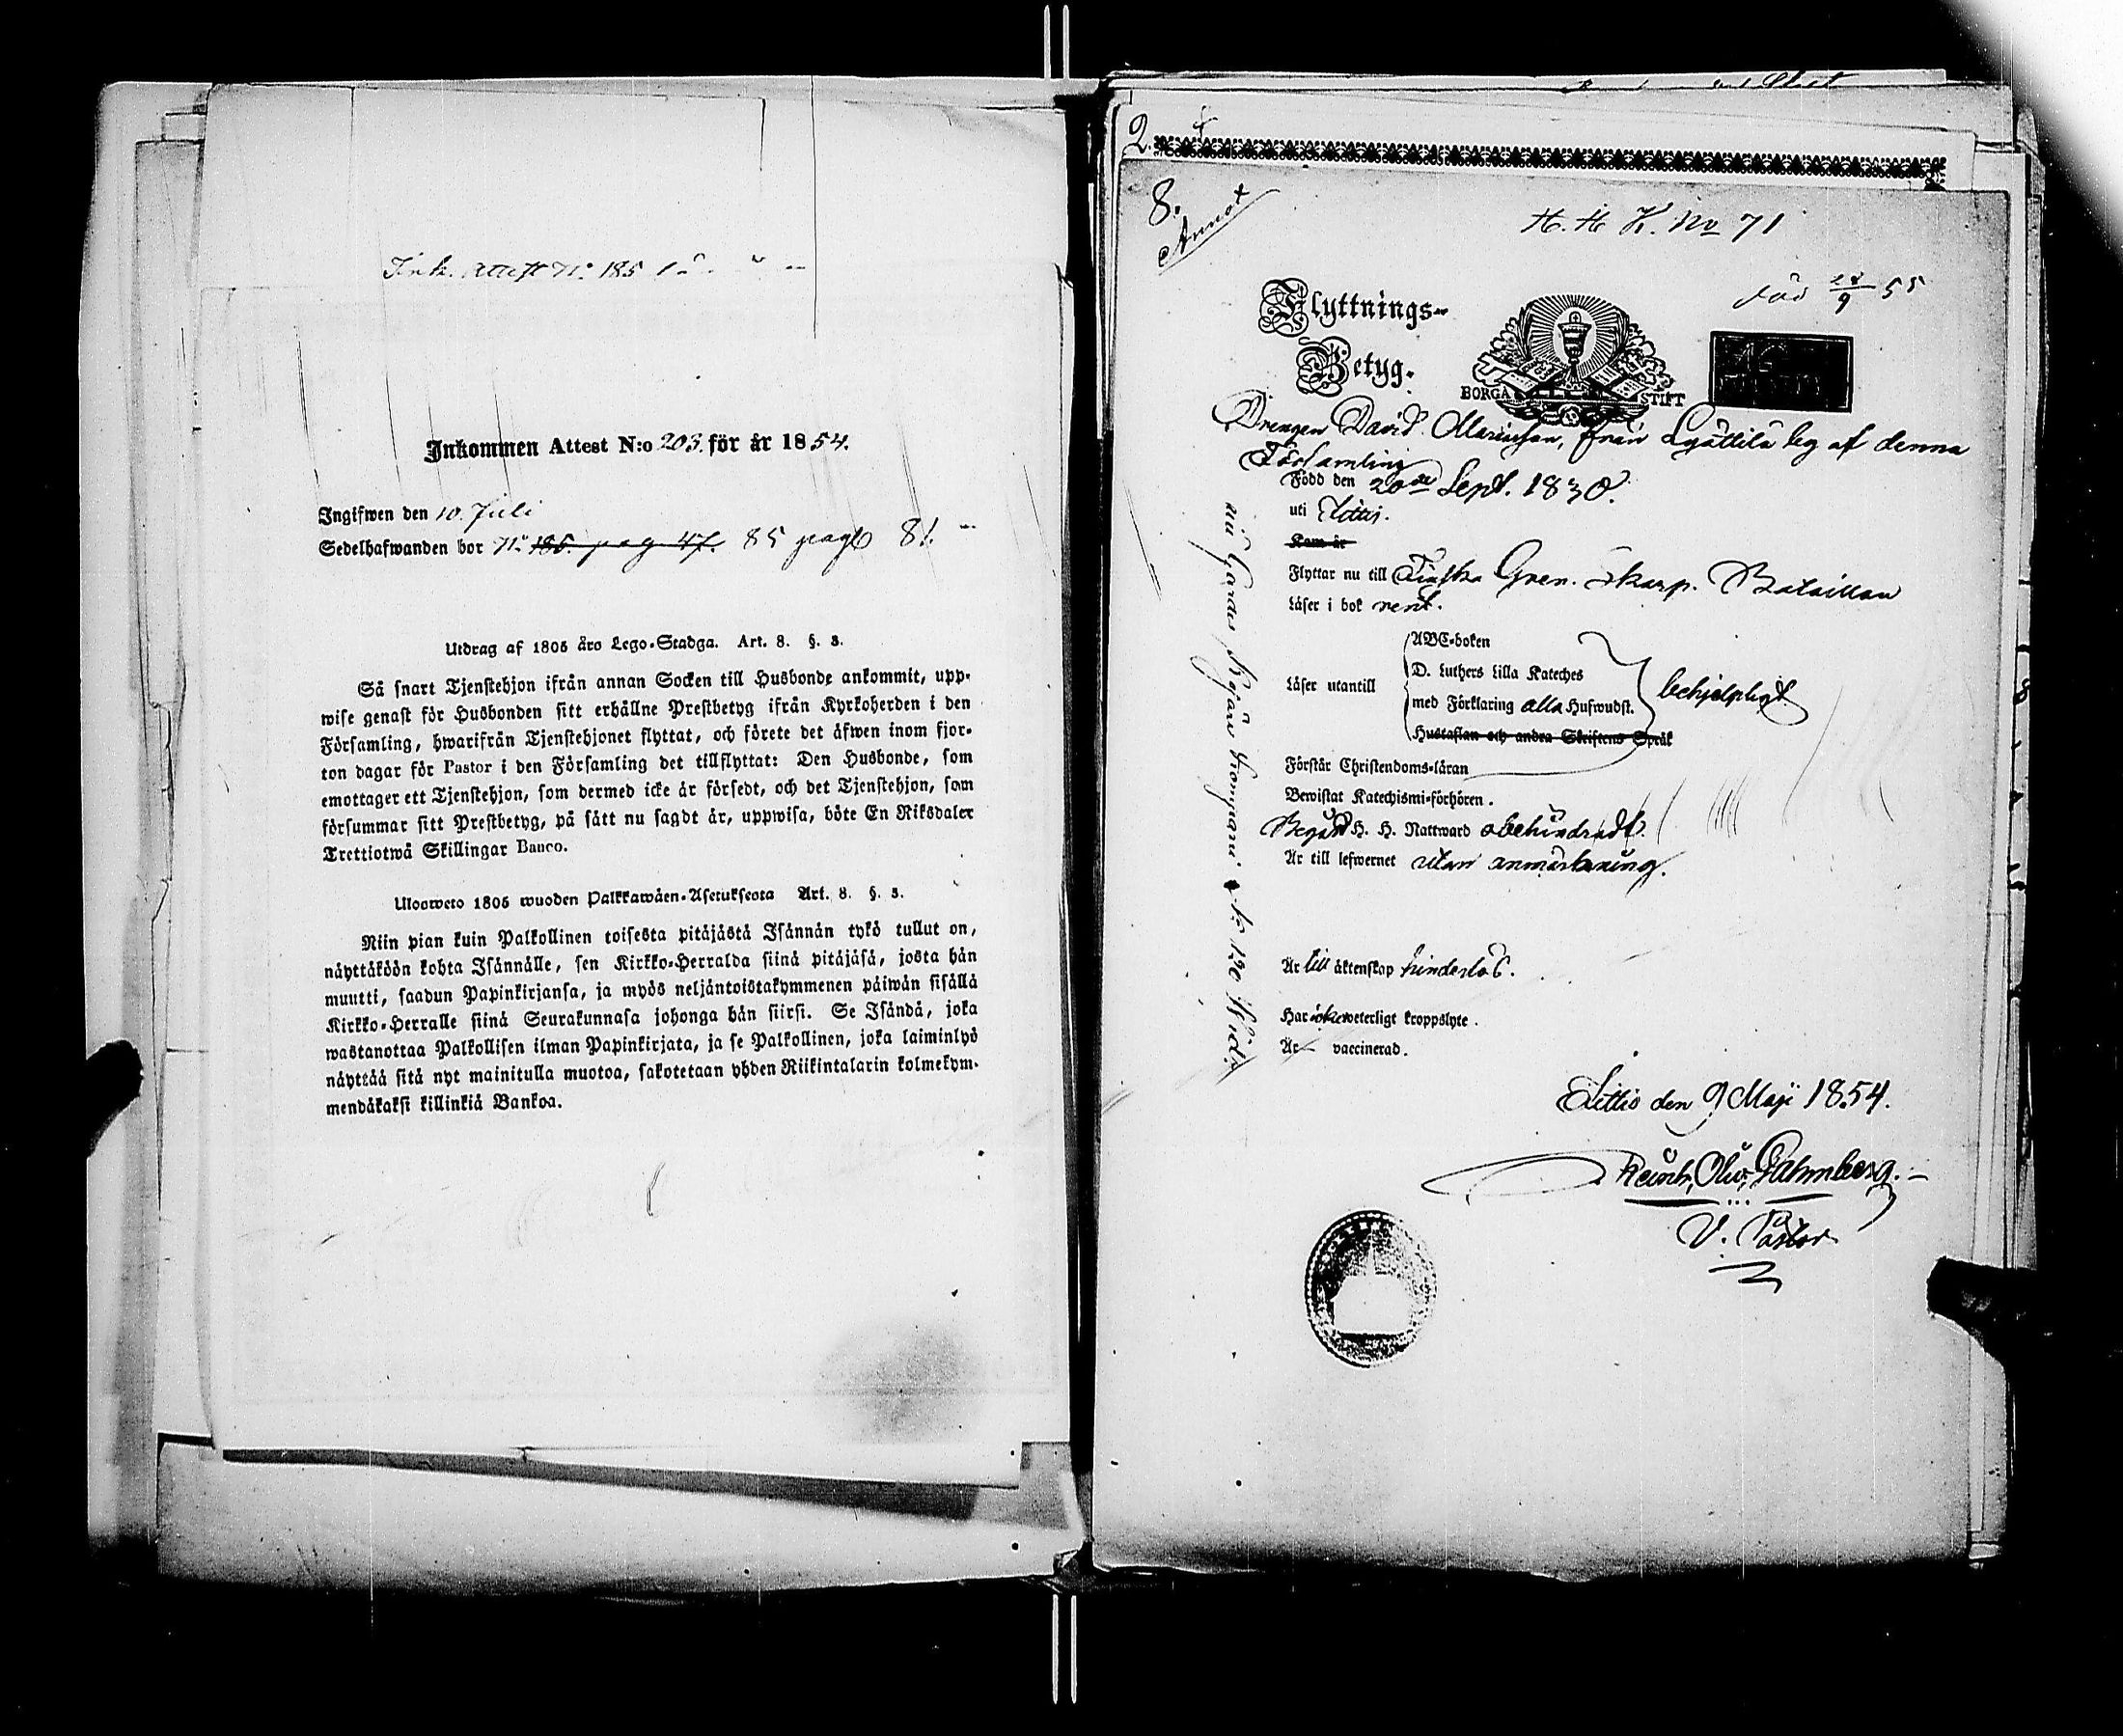 Ink. Attest N:o 185
Inkommen Attest N:o 203. för år 1854.
Ingifwen den 10. Juli
Sedelhafwanden bor N:o 185. pag 47. 85 pag 81.
Utdrag af 1805 års Lego-Stadga. Art. 8. §. 3.
Så snart Tjenstehjon ifrån annan Socken till Husbonde ankommit, upp-
wise genast för Husbonden sitt erhållne Prestbetyg ifrån Kyrkoherden i den
Församling, hwarifrån Tjenstehjonet flyttat, och förete det äfwen inom fjor-
ton dagar för Pastor i den Församling det tillflyttat: Den Husbonde, som
emottager ett Tjenstehjon, som dermed icke är försedt, och det Tjenstehjon, som
försummar sitt Prestbetyg, på sätt nu sagdt är, uppwisa, böte En Riksdaler
Trettiotwå Skillingar Banco.
Ulosweto 1805 wuoden Palkkawäen-Asetuksesta Art. 8. §. 3.
Niin pian kuin Palkollinen toisesta pitäjästä Isännän tykö tullut on,
näyttäköön kohta Isännälle, sen Kirkko-Herralda siinä pitäjäsä, josta hän
muutti, saadun Papinkirjansa, ja myös neljäntoistakymmenen päiwän sisällä
Kirkko-Herralle siinä Seurakunnasa johonga hän siirsi. Se Isändä, joka
wastanottaa Palkollisen ilman Papinkirjata, ja se Palkollinen, joka laiminlyö
näyttää sitä nyt mainitulla muotoa, sakotetaan yhden Riikintalarin kolmekym-
mendäkaksi killinkiä Bankoa.
2.
8.
Annot
H. H. K. No 71
död 28/9 55
Flyttnings-
Betyg.
BORGÅ STIFT
Drengen David från Lyöttilä by af denna
Församling
Född den 20de Sept. 1830.
uti Littis.
Kom år
Flyttar nu till Finska Gren. Skarp. Bataillon
Läser i bok rent.
Läser utantill
ABC-boken
D. Luthers Lilla Kateches
med Förklaring alla Hufwudst.
Hustaflan och andra Skriftens Språk
behjelpligt
Förstår Christendoms-läran
Bewistat Katechismi-förhören.
Begådt H. H. Nattward obehindradt.
Är till lefwernet utan anmärkning.
Är till äktenskap hinderlös.
Har icke weterligt kroppslyte.
Är vaccinerad.
Littis den 9 Maji 1854.
V. Pastor
nu Gardes Kompani N:o 120